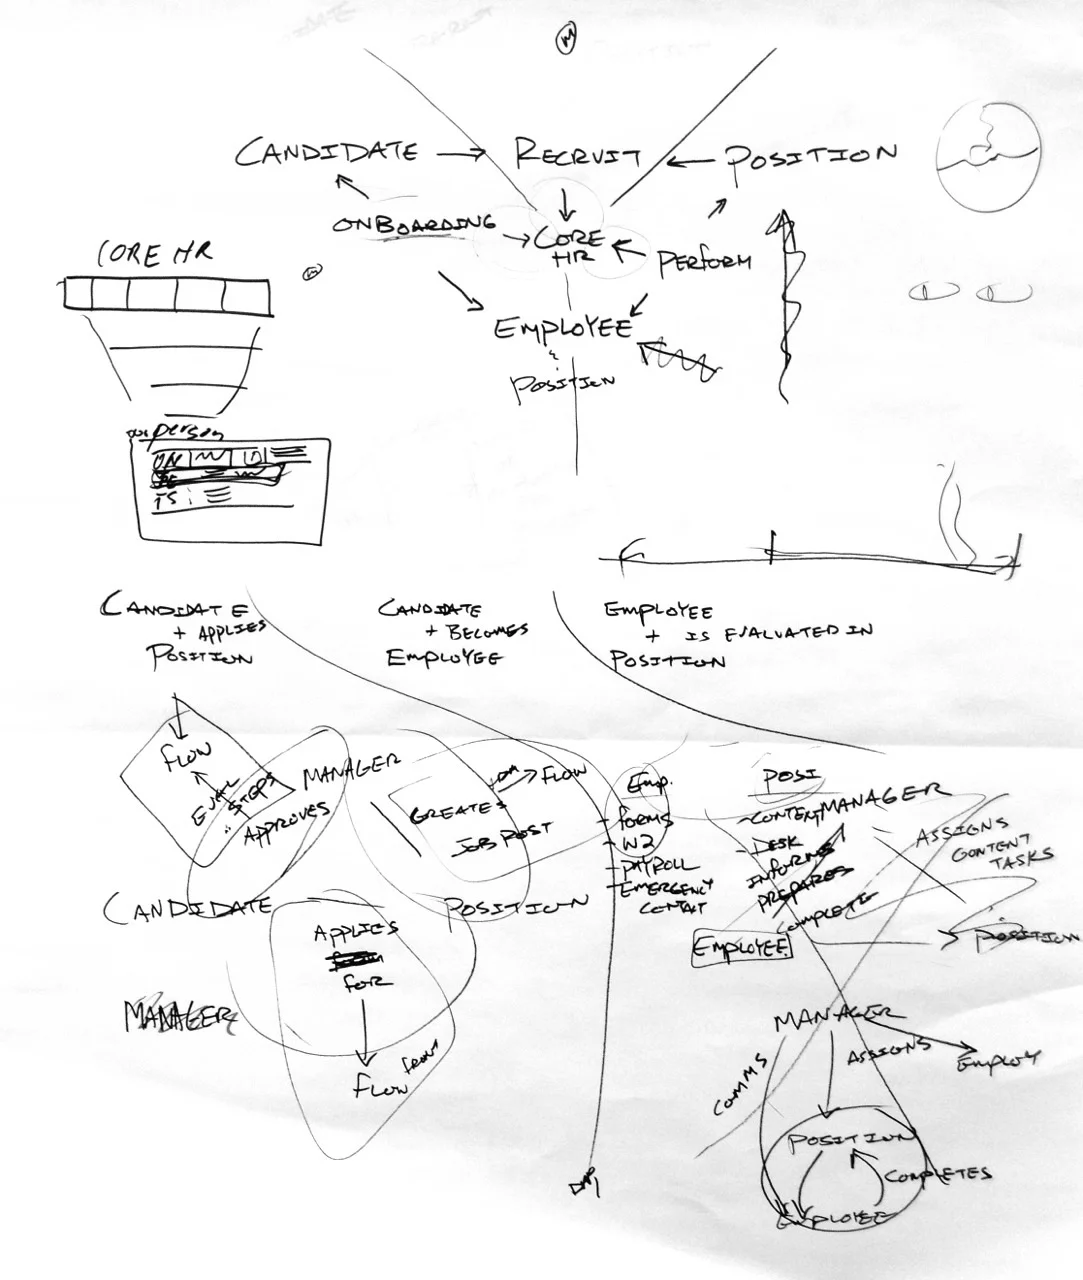 M
CANDIDATE → RECRUIT ← POSITION
ONBOARDING → CORE HR ← PERFORM
CORE HR
EMPLOYEE
POSITION
person
CANDIDATE
+ APPLIES
POSITION
CANDIDATE
+ BECOMES
EMPLOYEE
EMPLOYEE
+ IS EVALUATED IN
POSITION
FLOW
EVAL STEPS
MANAGER
APPROVES
CREATES
JOB POST
FLOW
CANDIDATE
POSITION
APPLIES
FOR
FLOW
FRONT
MANAGER
Emp.
- FORMS
- W2
- PAYROLL
- EMERGENCY
CONTACT
POSI
- CONTENT
- DESK
MANAGER
INFORMS
PREPARES
COMPLETE
ASSIGNS
CONTENT
TASKS
EMPLOYEE
POSITION
MANAGER
ASSIGNS
EMPLOY
COMMS
POSITION
COMPLETES
EMPLOYEE